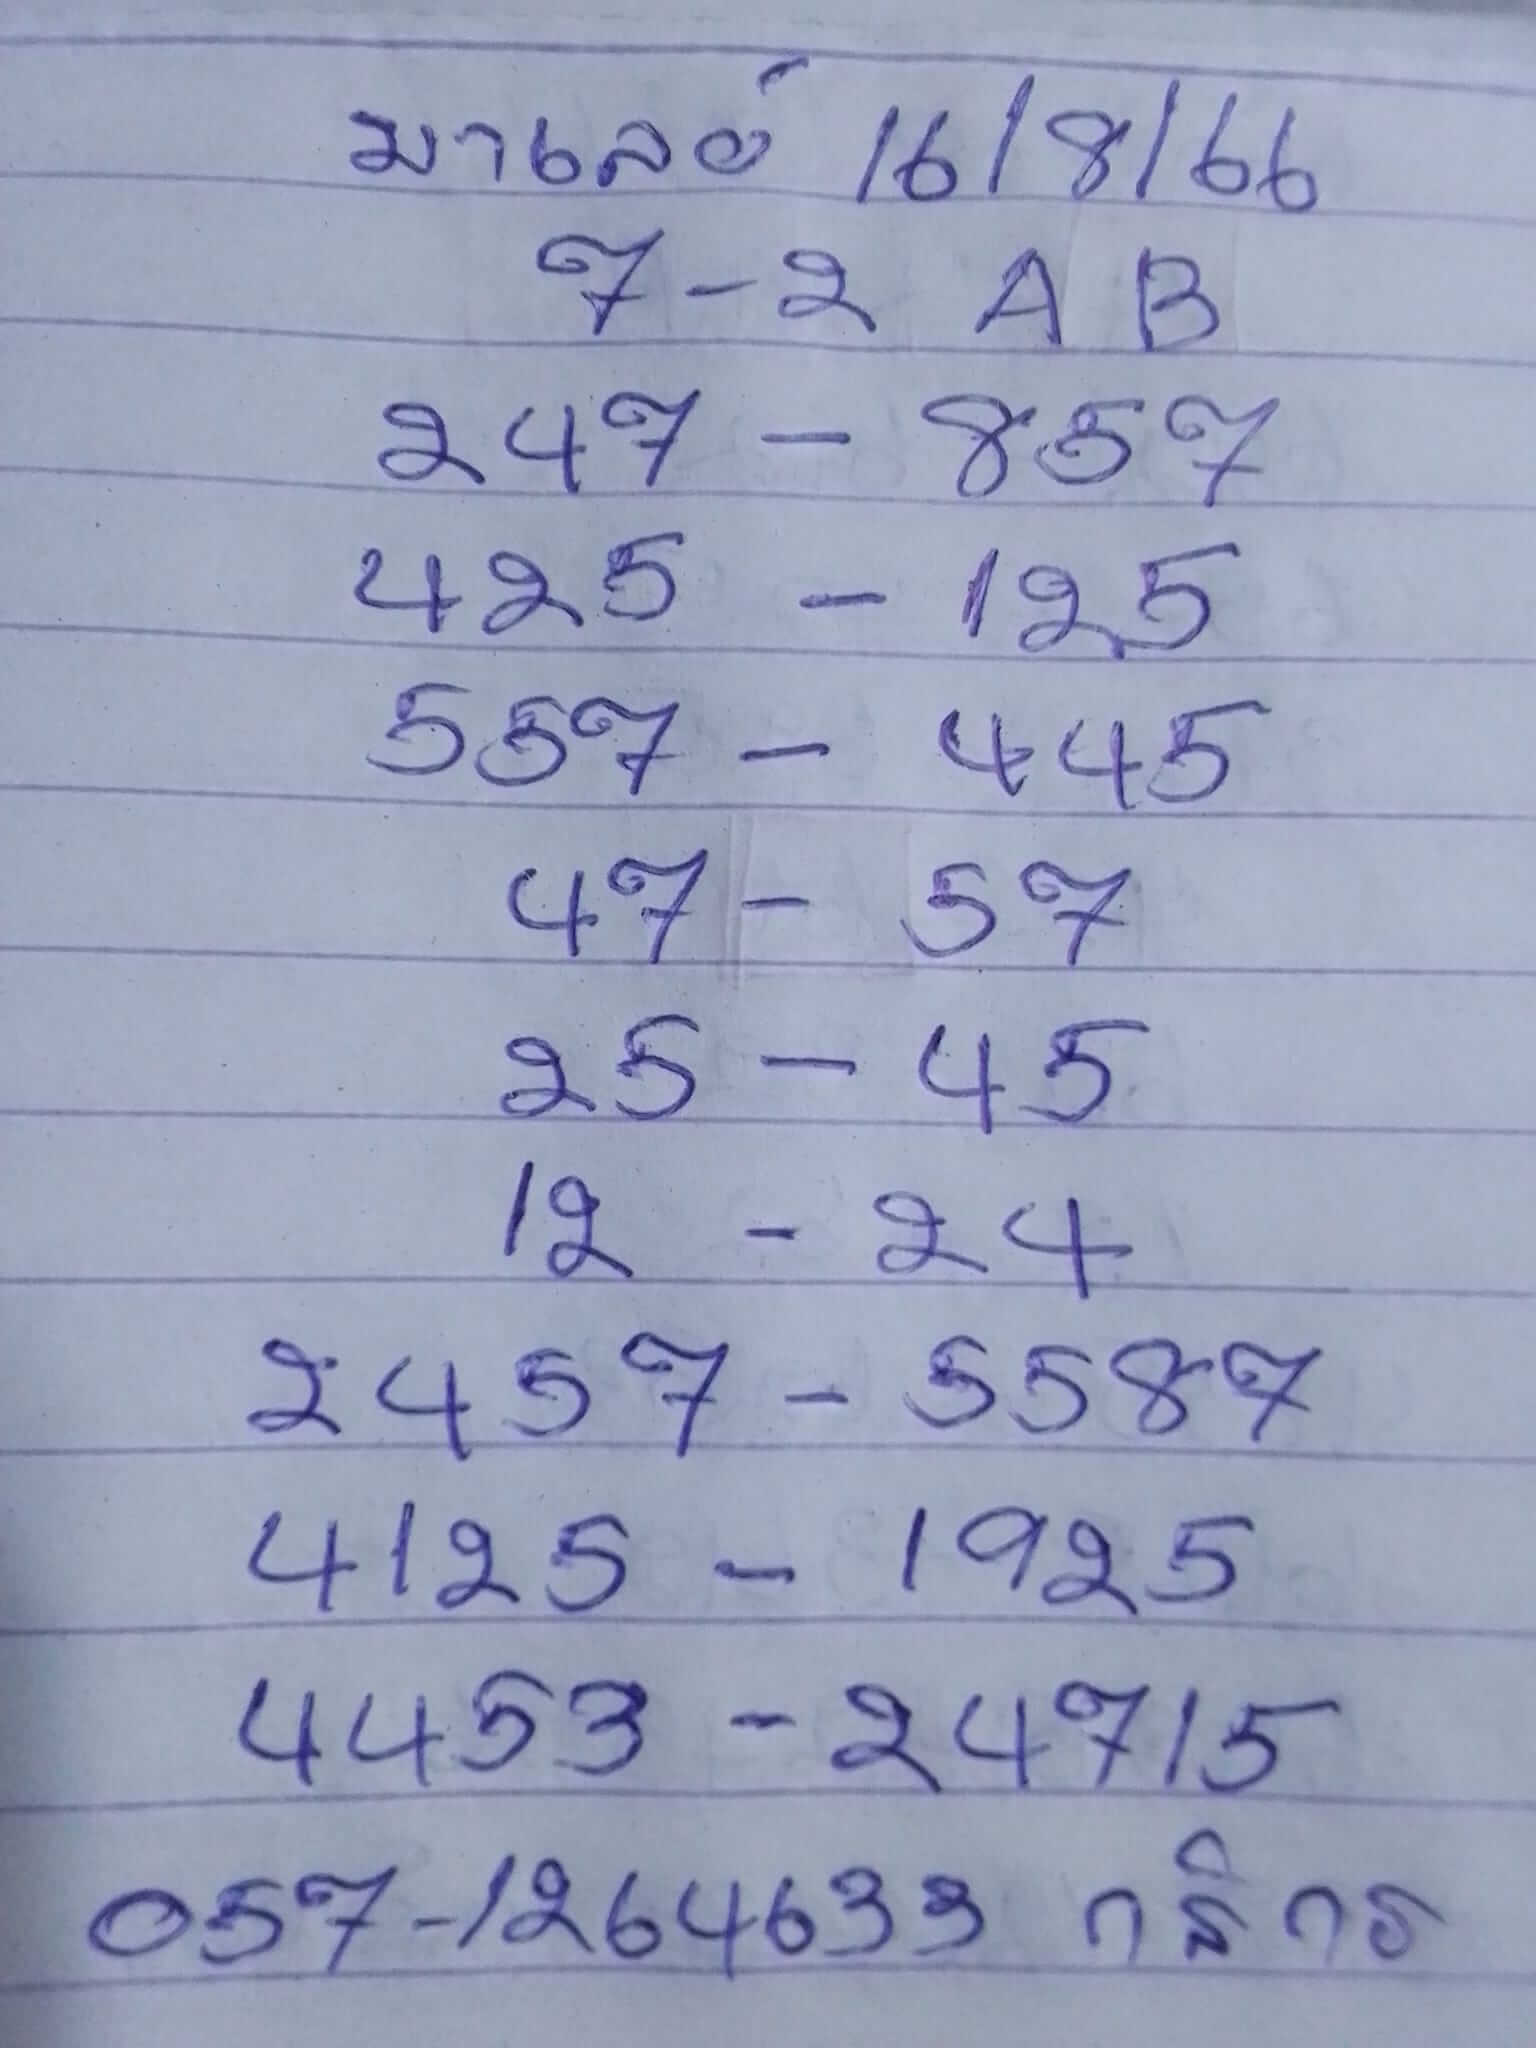 มาเลย์ 16/8/66
7-2 A B
247 - 857
425 - 125
557 - 445
47 - 57
25 - 45
12 - 24
2457 - 5587
4125 - 1925
4453 - 24715
057-1264633 กสิกร